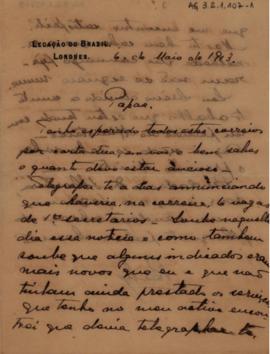 AG 3.2.1.107-1
LEGAÇÃO DO BRASIL.
LONDRES.
6 de Maio de 1903.
Papae.
Tenho esperado todos estes correios
por carta sua, não e bem sabes
o quanto devo estar ancioso.
Telegrafei te a dias annunciando
que haveria, na carreira, 16 vagas
de 1os secretarios. Tenho naquelle
dia esse noticia e como tambem
soube que alguns indicados eram
mais novos que eu e que não
tinham ainda prestado os serviços
que tenho no meu activo
foi que